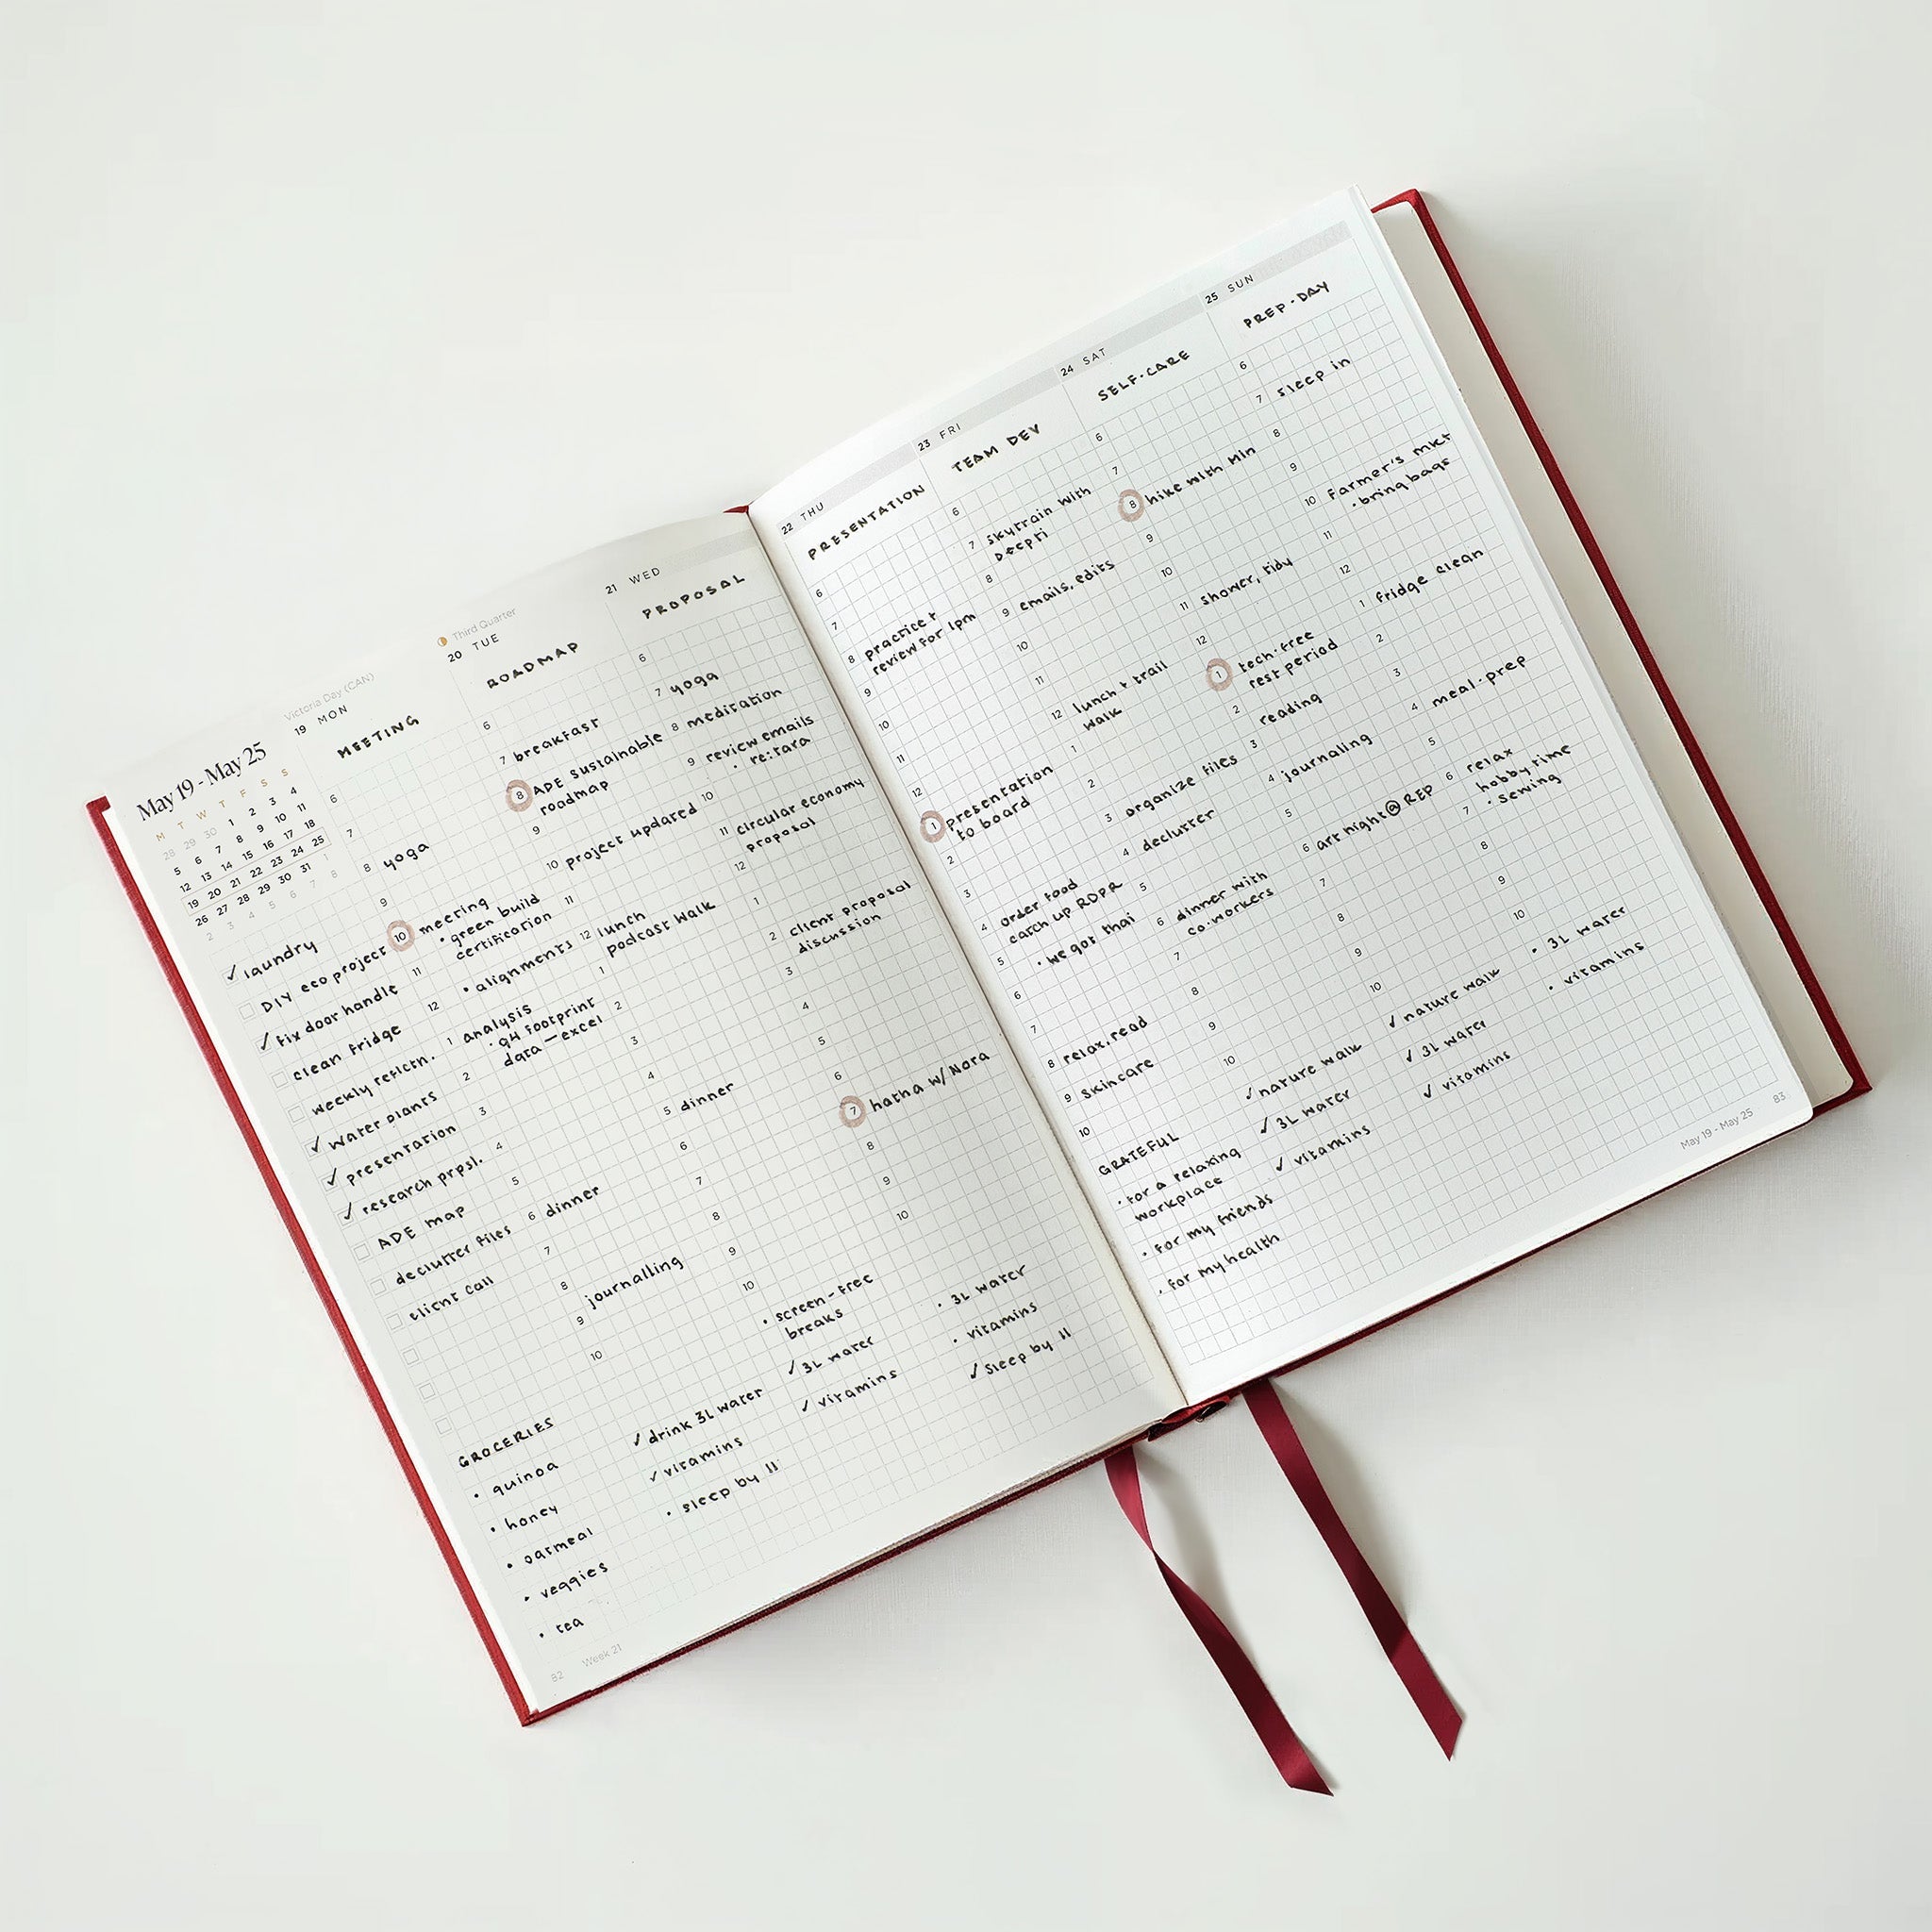 May 19 - May 25
M T W T F S S
28 29 30 1 2 3 4
5 6 7 8 9 10 11
12 13 14 15 16 17 18
19 20 21 22 23 24 25
26 27 28 29 30 31 1
2 3 4 5 6 7 8
✓ laundry
DIY eco project
✓ fix door handle
clean fridge
weekly reflctn.
✓ water plants
✓ presentation
✓ research prpsl.
ADE map
declutter files
client call
GROCERIES
• quinoa
• honey
• oatmeal
• veggies
• tea
82 Week 21
Victoria Day (CAN)
19 MON
MEETING
6
7
8 yoga
9
10 meeting
• green build
certification
11
• alignments
12
1 analysis
• q4 footprint
data - excel
2
3
4
5
6 dinner
7
8
journalling
9
10
✓ drink 3L water
✓ vitamins
• sleep by 11
Third Quarter
20 TUE
ROADMAP
6
7 breakfast
8 ADE sustainable
roadmap
9
10 project updated
11
12 lunch
podcast walk
1
2
3
4
5 dinner
6
7
8
9
10
• screen-free
breaks
✓ 3L water
✓ vitamins
21 WED
PROPOSAL
6
7 yoga
8 meditation
9 review emails
• re: tara
10
11 circular economy
proposal
12
1
2 client proposal
discussion
3
4
5
6
7 hatha w/ Nora
8
9
10
• 3L water
• vitamins
✓ sleep by 11
22 THU
PRESENTATION
6
7
8 practice +
review for 1pm
9
10
11
12
1 presentation
to board
2
3
4 order food
catch up RDPR
5
• we got thai
6
7
8 relax, read
9 skincare
10
GRATEFUL
• for a relaxing
workplace
• for my friends
• for my health
23 FRI
TEAM DEV
6
7 skytrain with
Deepti
8
9 emails, edits
10
11
12 lunch + trail
walk
1
2
3 organize files
4 declutter
5
6 dinner with
co-workers
7
8
9
10
✓ nature walk
✓ 3L water
✓ vitamins
24 SAT
SELF-CARE
6
7
8 hike with Min
9
10
11 shower, tidy
12
1 tech-free
rest period
2 reading
3
4 journaling
5
6 art night @ REP
7
8
9
10
✓ nature walk
✓ 3L water
✓ vitamins
25 SUN
PREP-DAY
6
7 sleep in
8
9
10 Farmer's mkt
• bring bags
11
12
1 fridge clean
2
3
4 meal-prep
5
6 relax
hobby time
• sewing
7
8
9
10
• 3L water
• vitamins
May 19 - May 25 83